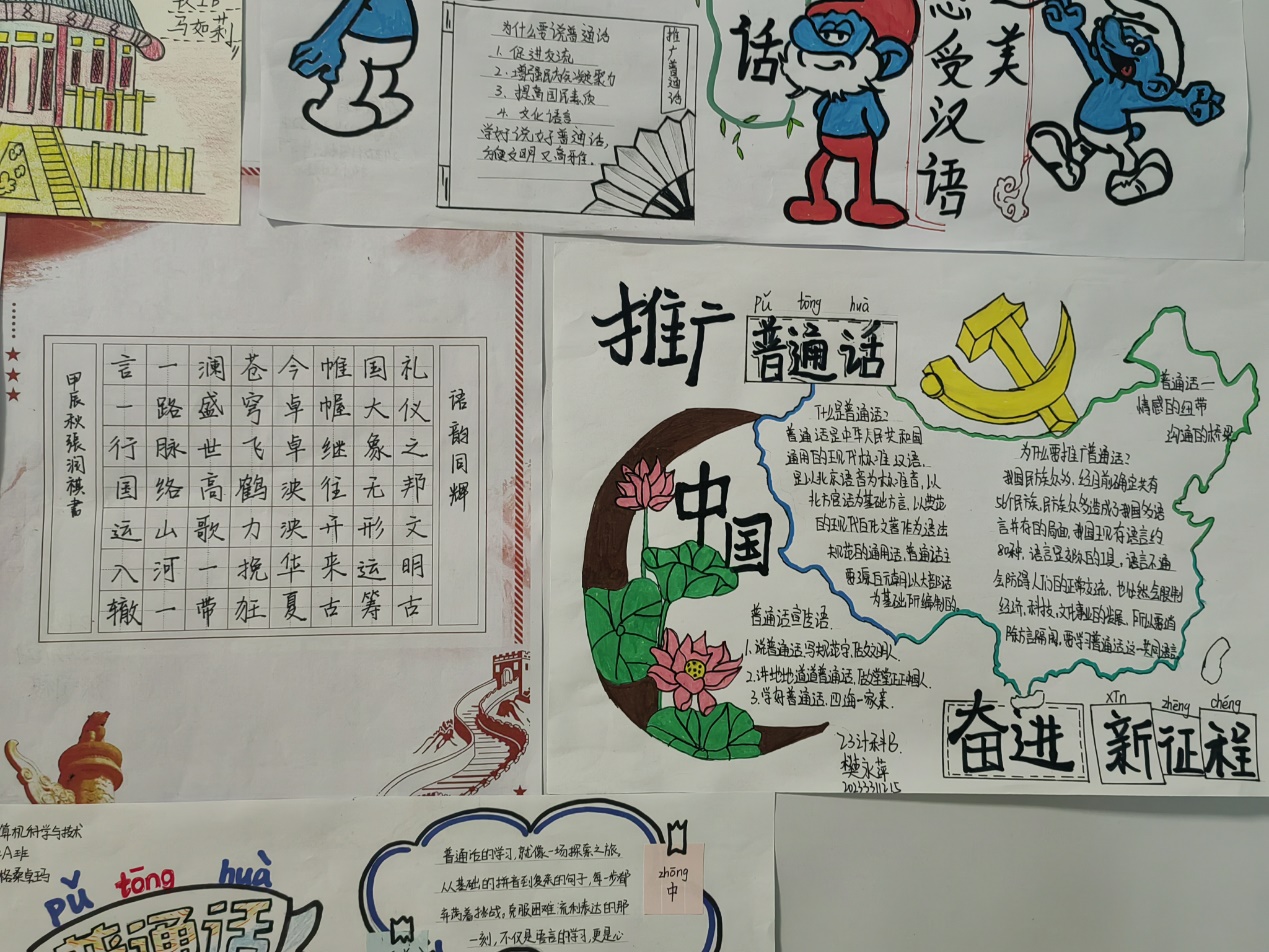 马如莉
为什么要说普通话
1. 促进交流
2. 增强民族凝聚力
3. 提高国民素质
4. 文化语言
学好说好普通话,
方便文明又高雅.
推广普通话
话
感受汉语
美
语韵同辉
礼仪之邦文明古
国大象无形运筹
帷幄继往开来古
今卓卓泱泱华夏
苍穹飞鹤力挽狂
澜盛世高歌一带
一路脉络山河一
言一行国运入辙
甲辰秋張润祺書
pǔ tōng huà
推广普通话
中国
什么是普通话?
普通话是中华人民共和国
通用的现代标准汉语.
是以北京语音为标准音,以
北方官话为基础方言,以典范
的现代白话文著作为语法
规范的通用话.普通话主
要源自元朝以大都话
为基础所编制的.
普通话一
情感的纽带
沟通的桥梁
为什么要推广普通话?
我国民族众多,经目前确定共有
56个民族.民族众多造成了我国多语
言并存的局面,我国现有语言约
80种.语言是交际的工具,语言不通
会妨碍人们的正常交流,也必然会限制
经济,科技,文化事业的发展.所以要消
除方言隔阂,要学习普通话这一共同语言
普通话宣传语.
1.说普通话.写规范字,做文明人.
2.讲地地道道普通话,做堂堂正正中国人.
3.学好普通话.四海一家亲.
23计科B.
樊永萍
20233311215
xīn zhēng chéng
奋进新征程
算机科学与技术
A班
格桑卓玛
pǔ tōng huà
普通话
普通话的学习,就像一场探索之旅.
从基础的拼音到复杂的句子,每一步都
充满着挑战.克服困难 流利表达的那
一刻,不仅是语言的学习,更是心
zhōng
中